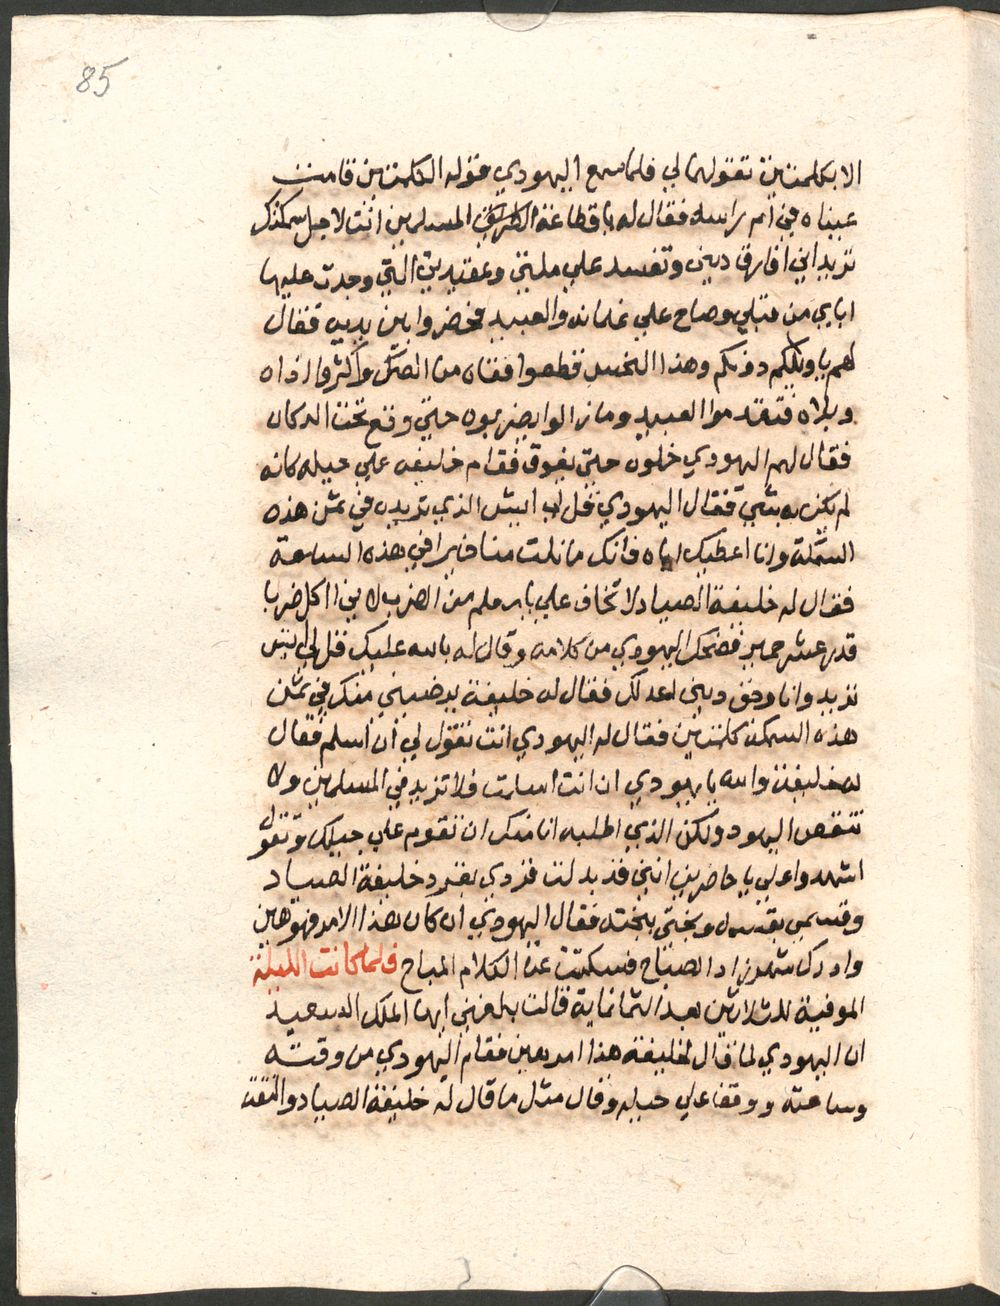 85
الا بكلمتين تقولهما لي فلما سمع اليهودي قوله الكلمتين قامت
عيناه في ام راسه فقال له يا قطاعة الطريق المسلمين انت لاجل سمكتك
تريد اني افارق ديني وتفسد علي ملتي وعقيدتي التي وجدت عليها
اباي من قبلي وصاح علي غلمانه والعبيد فحضروا بين يديه فقال
لهم يا ويلكم دونكم وهذا النحس قطعوا قفاه من الصك واكثروا اذاه
فتقدموا العبيد وما زالوا يضربوه حتي وقع تحت الدكان
فقال لهم اليهودي خلوه حتي يفوق فقام خليفه علي حيله كانه
لم يكن به شي فقال اليهودي قل لي ايش الذي تريده في ثمن هذه
السمكة وانا اعطيك اياه فانك ما نلت منا خيرا في هذه الساعة
فقال له خليفة الصياد لا تخاف علي يا معلم من الضرب لاني اكل ضربا
قدر عشر حمير فضحك اليهودي من كلامه وقال له بالله عليك قل لي ايش
تريد وانا وحق ديني فقال له خليفة يرضيني منك في ثمن
هذه السمكة كلمتين فقال له اليهودي انت تقول لي ان اسلم فقال
له خليفة والله يا يهودي ان انت اسلمت فلا تزيد في المسلمين ولا
تنقص اليهود ولكن الذي اطلبه انا منك ان تقوم علي حيلك وتقول
اشهدوا علي يا حاضرين انني قد بدلت قردي بقرد خليفة الصياد
وقسمي بقسمه وبختي ببخته فقال اليهودي ان كان هذا الامر فهو هين
وادرك شهرزاد الصباح فسكتت عن الكلام المباح فلما كانت الليلة
الموفية للثلاثين بعد الثمانماية قالت بلغني ايها الملك السعيد
ان اليهودي لما قال لخليفة هذا امر هين فقام اليهودي من وقته
وساعته ووقف علي حيله وقال مثل ما قال له خليفة الصياد والتفت